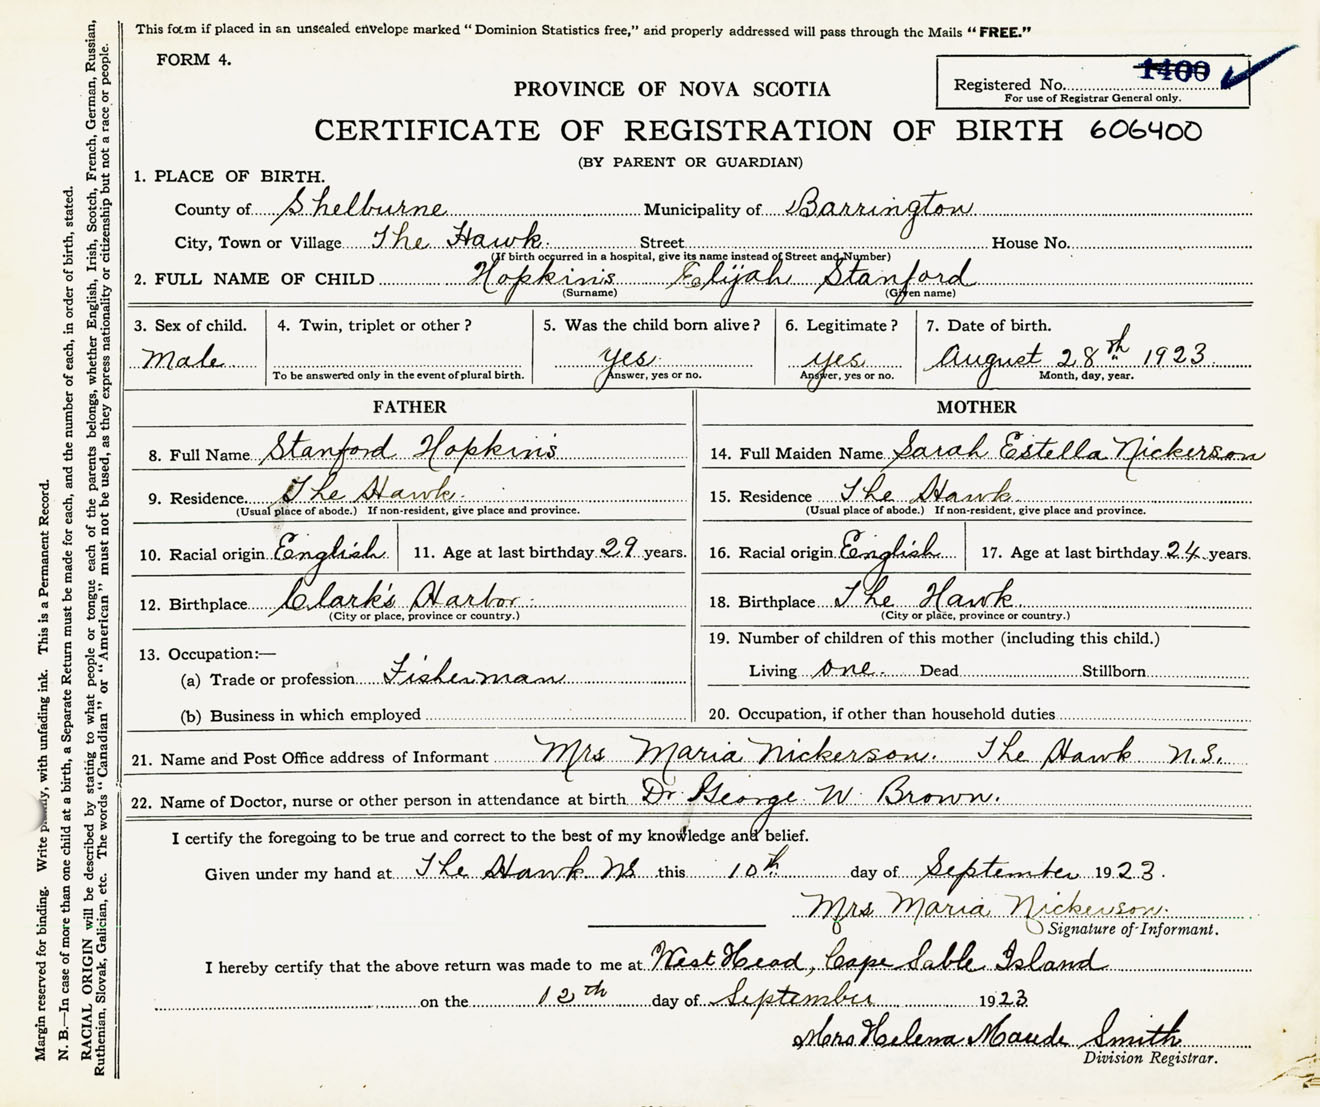 This form if placed in an unsealed envelope marked “Dominion Statistics free,” and properly addressed will pass through the Mails “FREE.”
FORM 4.
1400
Registered No.
For use of Registrar General only.
PROVINCE OF NOVA SCOTIA
CERTIFICATE OF REGISTRATION OF BIRTH 606400
(BY PARENT OR GUARDIAN)
1. PLACE OF BIRTH.
County of Shelburne Municipality of Barrington
City, Town or Village The Hawk. Street House No.
(If birth occurred in a hospital, give its name instead of Street and Number)
2. FULL NAME OF CHILD Hopkins Elijah Stanford
(Surname) (Given name)
3. Sex of child. 4. Twin, triplet or other? 5. Was the child born alive? 6. Legitimate? 7. Date of birth.
Male yes. yes August 28th 1923.
To be answered only in the event of plural birth. Answer, yes or no. Answer, yes or no. Month, day, year.
FATHER MOTHER
8. Full Name Stanford Hopkins 14. Full Maiden Name Sarah Estella Nickerson
9. Residence The Hawk. 15. Residence The Hawk.
(Usual place of abode.) If non-resident, give place and province. (Usual place of abode.) If non-resident, give place and province.
10. Racial origin English 11. Age at last birthday 29 years. 16. Racial origin English 17. Age at last birthday 24 years.
12. Birthplace Clark's Harbor. 18. Birthplace The Hawk.
(City or place, province or country.) (City or place, province or country.)
19. Number of children of this mother (including this child.)
13. Occupation:—
Living one. Dead Stillborn
(a) Trade or profession Fisherman
(b) Business in which employed 20. Occupation, if other than household duties
21. Name and Post Office address of Informant Mrs Maria Nickerson. The Hawk N.S.
22. Name of Doctor, nurse or other person in attendance at birth Dr. George W Brown.
I certify the foregoing to be true and correct to the best of my knowledge and belief.
Given under my hand at The Hawk NS this 10th day of September 1923.
Mrs Maria Nickerson.
Signature of Informant.
I hereby certify that the above return was made to me at West Head, Cape Sable Island
on the 12th day of September 1923
Mrs Helena Maude Smith
Division Registrar.
Margin reserved for binding. Write plainly, with unfading ink. This is a Permanent Record.
N. B.—In case of more than one child at a birth, a Separate Return must be made for each, and the number of each, in order of birth, stated.
RACIAL ORIGIN will be described by stating to what people or tongue each of the parents belongs, whether English, Irish, Scotch, French, German, Russian,
Ruthenian, Slovak, Galician, etc. The words “Canadian” or “American” must not be used, as they express nationality or citizenship but not a race or people.